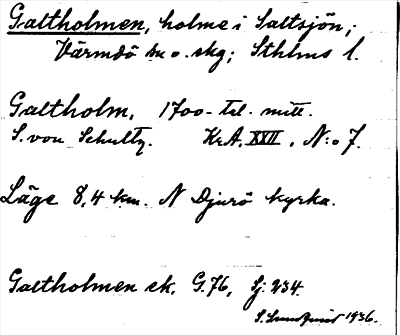 Galtholmen, holme i Saltsjön,
Värmdö sn o. skg; Sthlms l.
Galtholm, 1700-tal. mitt.
S. von Schultz. KrA. XXII, N:o 7.
Läge 8,4 km. N Djurö kyrka.
Galtholmen ek. G.76, Sj. 234.
S. Lundquist 1936.